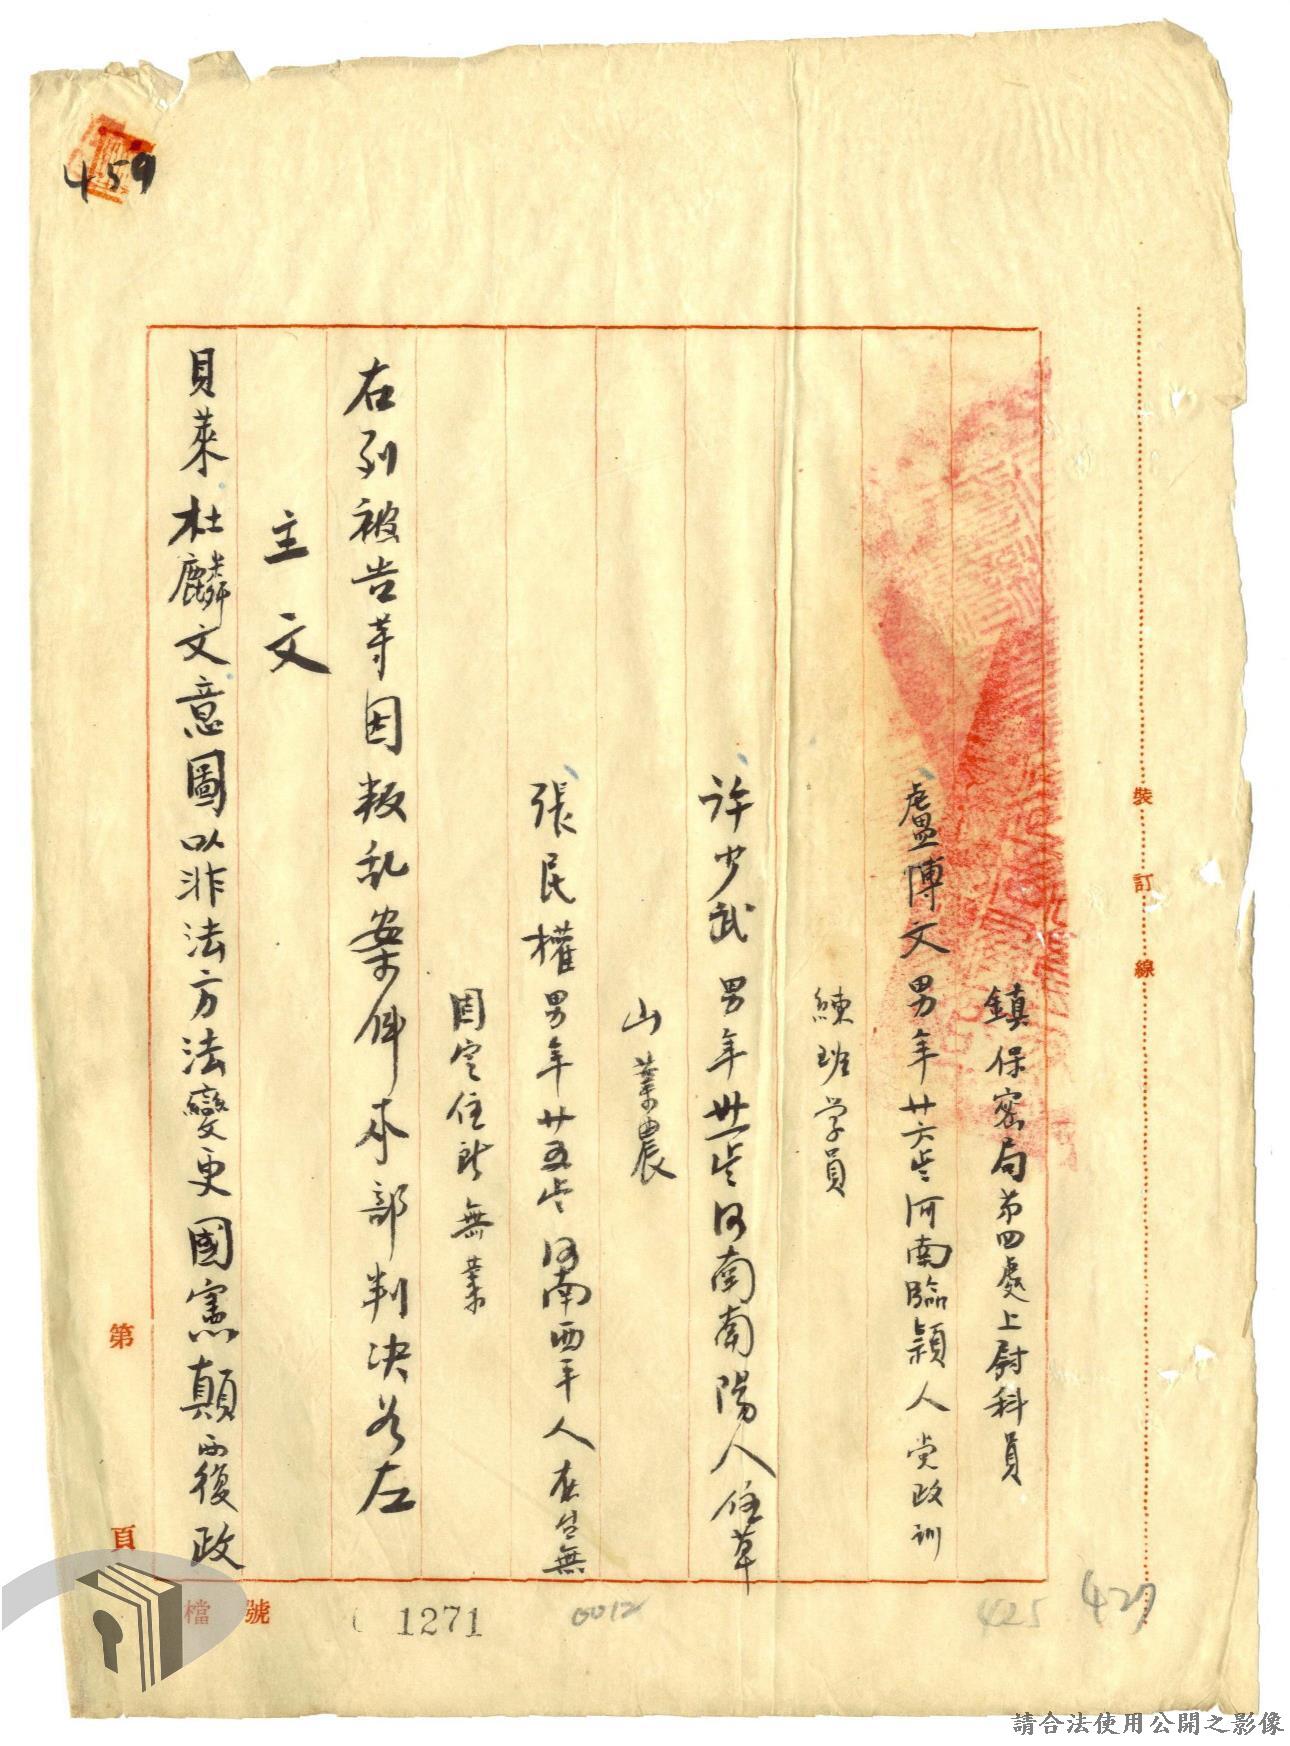 鎮保密局第四處上尉科員
盧博文男年廿六歲河南臨潁人党政訓
練班学員
許少武男年卅一歲河南南陽人住草
山業農
張民權男年廿五歲河南西平人在台無
固定住所無業
右列被告等因叛乱案件本部判决如左
主文
貝萊杜麟文意圖以非法方法變更國憲顛覆政
裝訂線
第 頁
檔號
459
1271
0012
425
427
請合法使用公開之影像